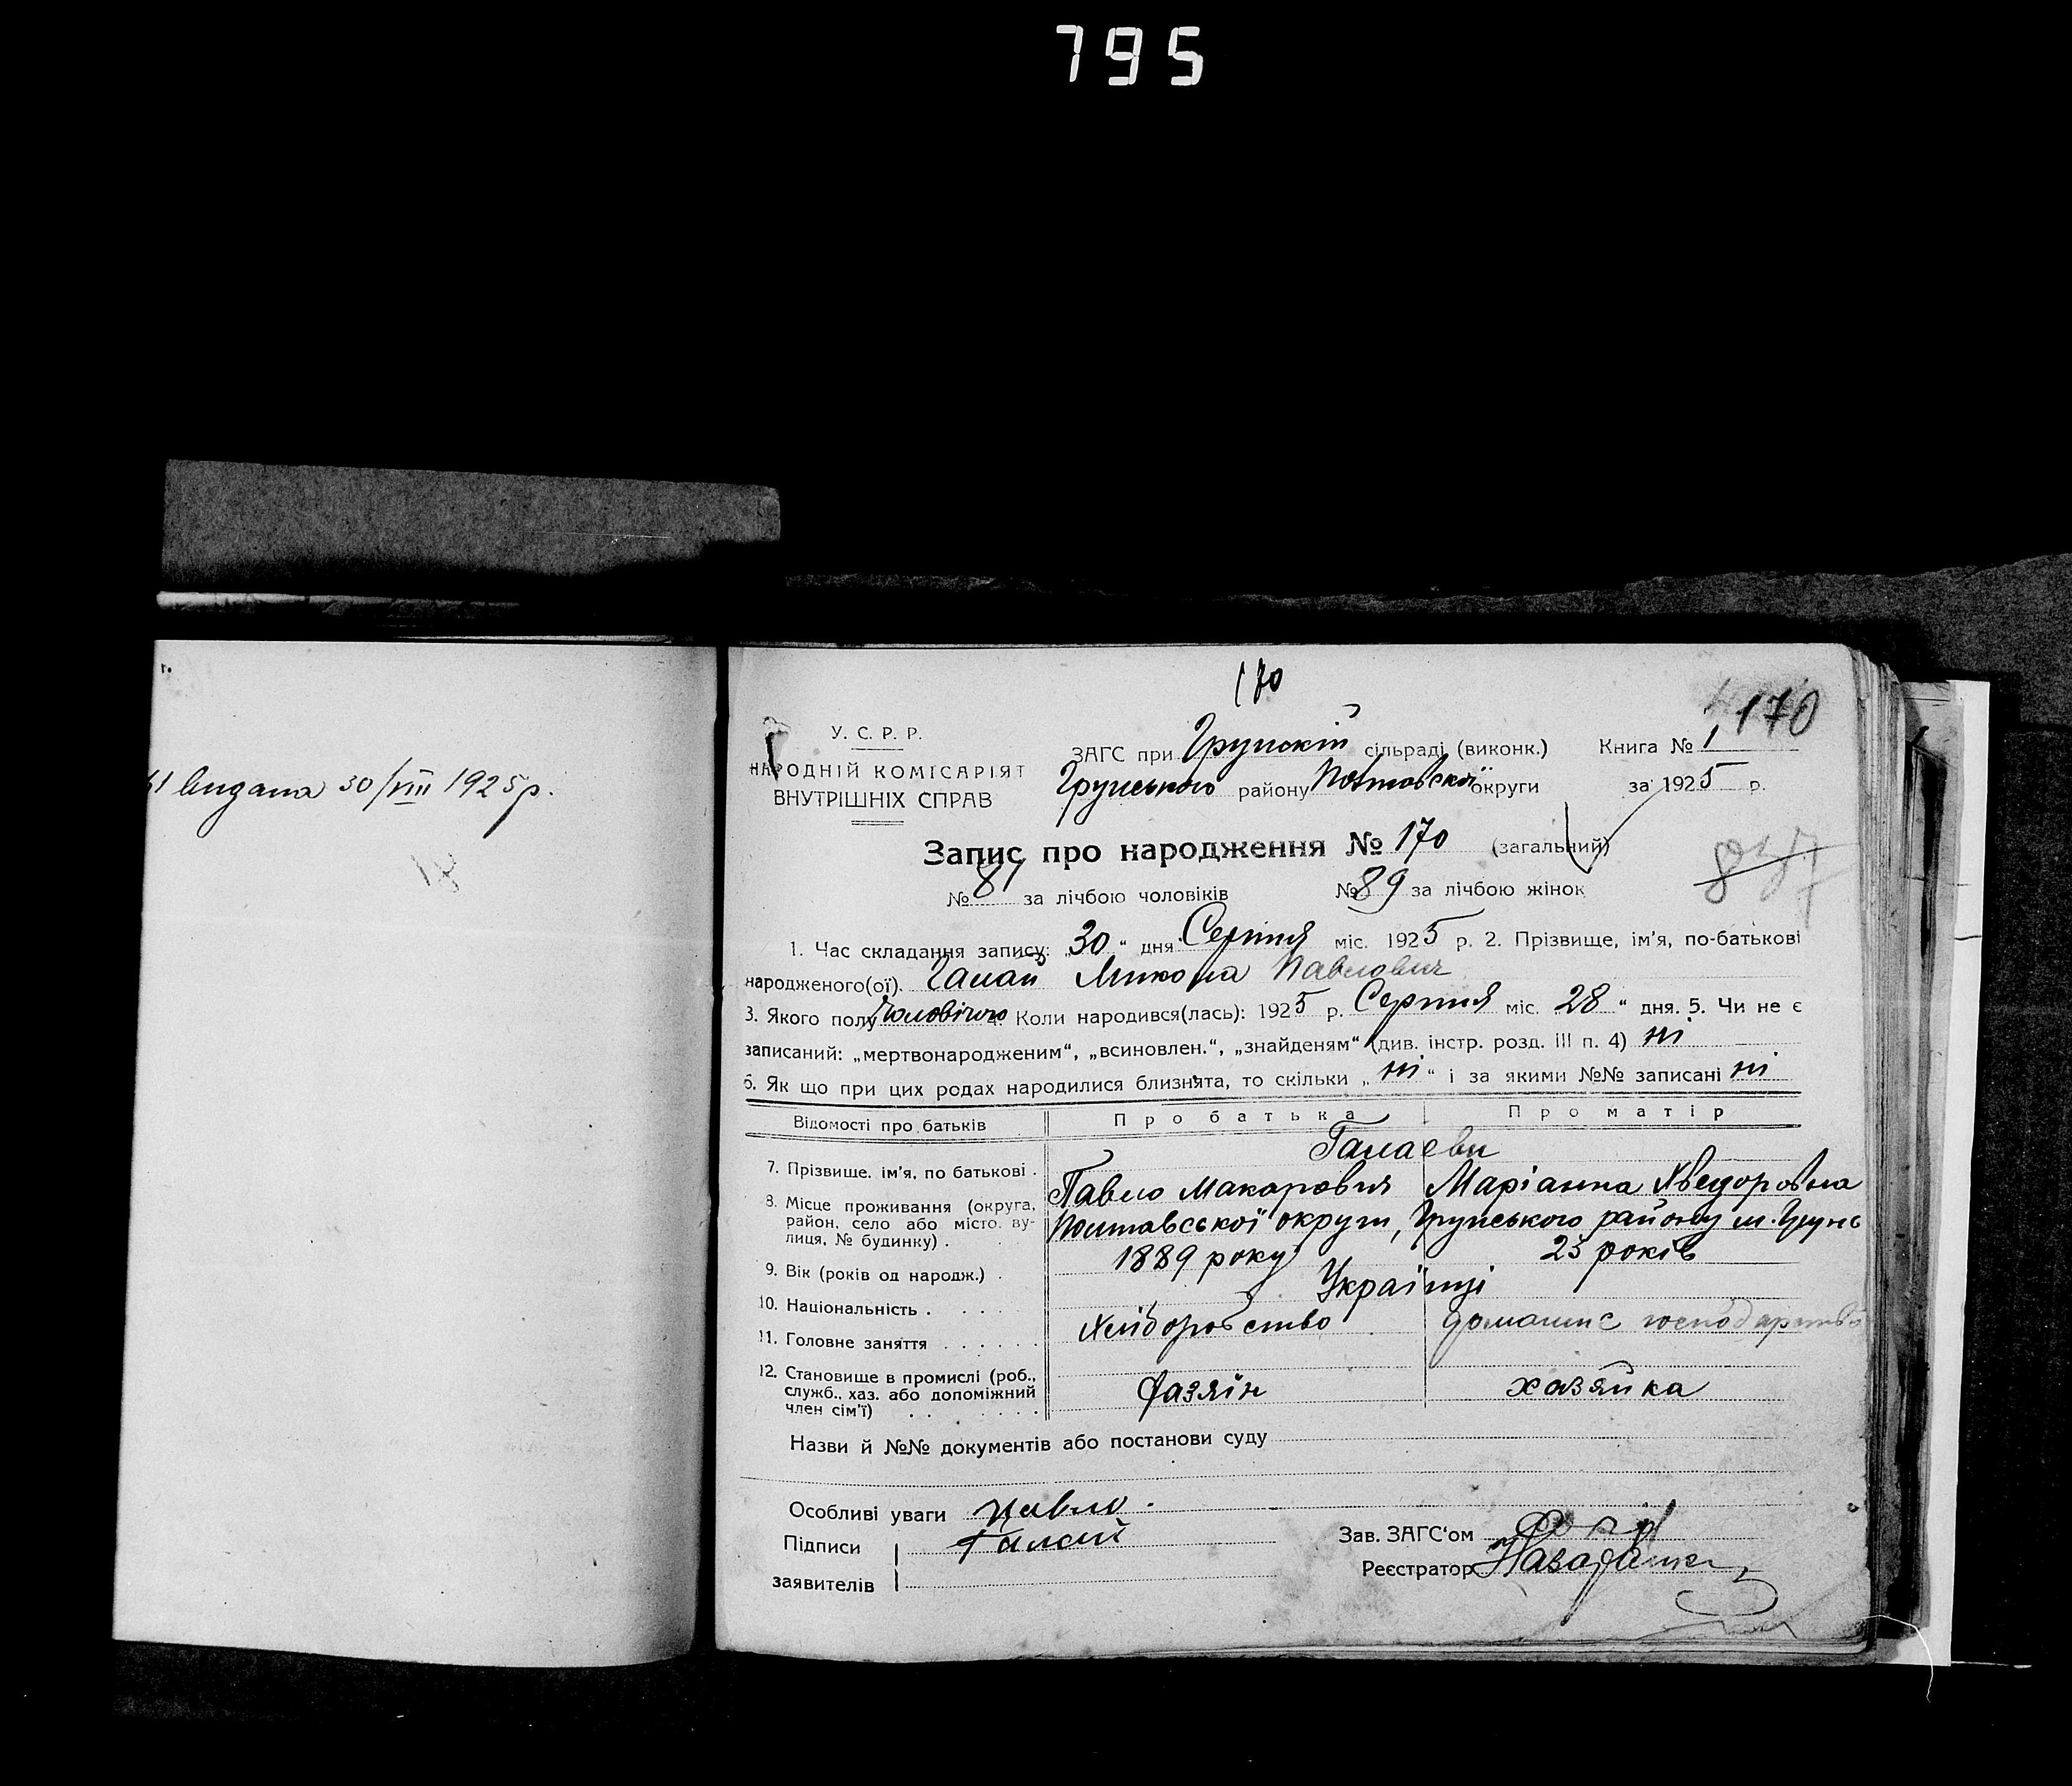 795
170
170
У. С. Р. Р.
НАРОДНІЙ КОМІСАРІЯТ
ВНУТРІШНІХ СПРАВ
ЗАГС при Грунській сільраді (виконк.)
Грунського району Полтавської округи
Книга № 1
за 1925 р.
видана 30/VIII 1925 р.
Запис про народження № 170 (загальний)
№ 81 за лічбою чоловіків № 89 за лічбою жінок
1. Час складання запису: „30“ дня Серпня міс. 1925 р. 2. Прізвище, ім'я, по-батькові
народженого(ої). Галай Микола Павлович
3. Якого полу Чоловічого 4. Коли народився(лась): 1925 р. Серпня міс. 28“ дня. 5. Чи не є
записаний: „мертвонародженим“, „всиновлен.“, „знайденям“ (див. інстр. розд. III п. 4) ні
6. Як що при цих родах народилися близнята, то скільки „ні“ і за якими №№ записані ні
Відомості про батьків Про батька Про матір
Галаєви
7. Прізвище, ім'я, по батькові . Павло Макарович Маріанна Хведоровна
8. Місце проживання (округа, район, село або місто, вулиця, № будинку) . Полтавської округи, Грунського району м. Грунь
9. Вік (років од народж.) . 1889 року 23 років
10. Національність . . . . . Українці
11. Головне заняття . . . . . . Хліборобство домашнє господарство
12. Становище в промислі (роб.,
служб., хаз. або допоміжний
член сім'ї) . . . . . . . хазяїн хазяйка
Назви й №№ документів або постанови суду
Особливі уваги Павло
Підписи Галай
заявителів
Зав. ЗАГС'ом
Реєстратор